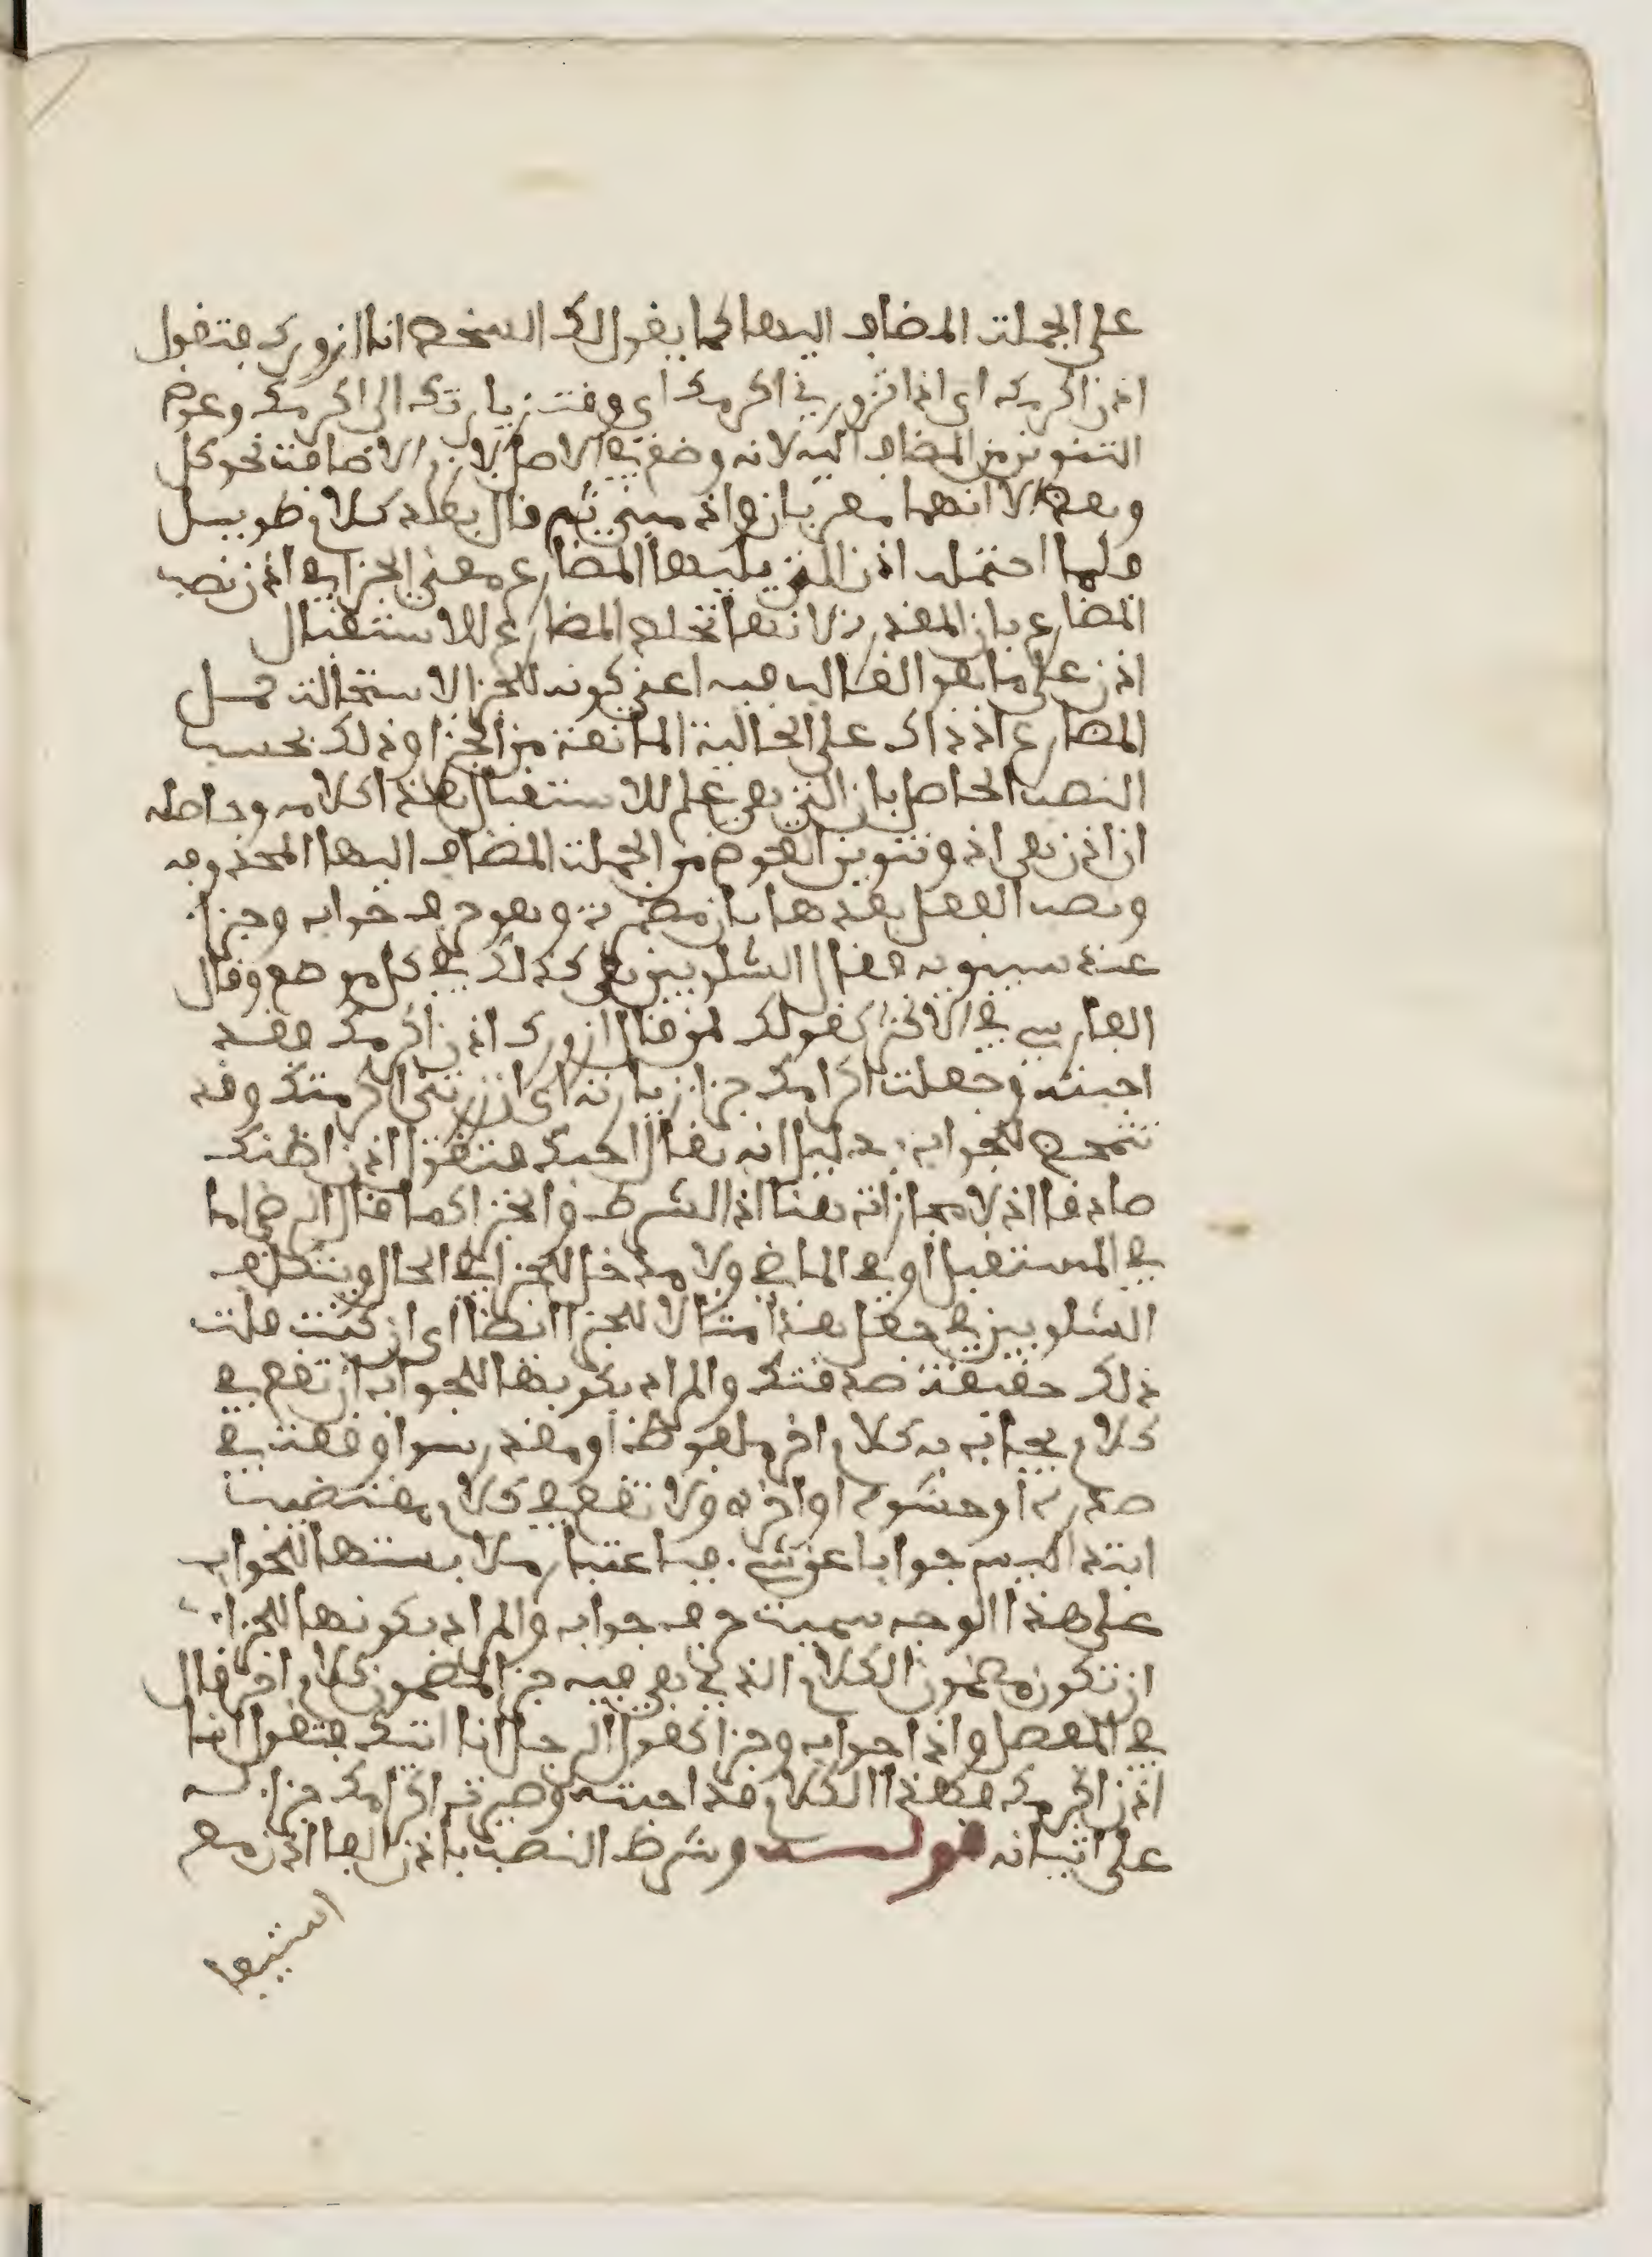 على الجملة المضاف اليها كما يقول لك الشخص انا ازورك فتقول
اذن اكرمك اى اذا تزورنى اكرمك اى وقت زيارتك الى اكرمك وعوض
التنوين من المضاف اليه لانه وضع فى الاصل لازم الاضافة نحو كل
وبعض الا انهما معربان واذ مبنى ثم قال بعد كلام طويل
ولما احتمل اذن التى يليها المضارع معنى الجزاء فى اذن نصب
المضارع بان المقدرة لانها تخلص المضارع للاستقبال
اذن على ما هو الغالب فيه اعنى كونه للجزا لاستحالة حمل
المضارع اذ ذاك على الحالية المانعة من الجزا وذلك بحسب
النصب الحاصل بان التى هى علم للاستقبال هذا كلامه وحاصله
ان اذن هى اذ وتنوين العوض من الجملة المضاف اليها المحذوفة
ونصب الفعل بعدها بان مضمرة وهو حرف جواب وجزا
عند سيبويه فقال الشلوبين هى كذلك فى كل موضع وقال
الفارسى فى الاكثر كقولك لمن قال ازورك اذن اكرمك فقد
اجبته وجعلت اكرامك جزا زيارته اى ان زرتنى اكرمتك وقد
تتمحض للجواب بدليل انه يقال احبك فتقول اذن اظنك
صادقا اذ لا مجازاة هنا اذ الشرط والجزا كما قال الرضى اما
فى المستقبل او فى الماضى ولا مدخل للجزا فى الحال ويتكلف
الشلوبين فى جعل هذا مثالا للجزا ايضا اى ان كنت قلت
ذلك حقيقة صدقتك والمراد بكونها للجواب ان تقع فى
كلام يجاب به كلام اخر ملفوظ او مقدر سوا وقعت فى
صدره او حشوه او اخره ولا تقع فى كلام مقتضب
ابتدا ليس جوابا عن شى فباعتبار ملابستها للجواب
على هذا الوجه سميت حرف جواب والمراد بكونها للجزا
ان تكون مضمون الكلام الذى هى فيه جزا لمضمون كلام اخر قال
فى المفصل واذا جواب وجزا كقول الرجل انا اتيك فتقول انا
اذن اكرمك فهذا الكلام قد اجبته وصيرت اكرامك جزا له
على اتيانه قوله وشرط النصب باذن الغا اذن مع
استيفا